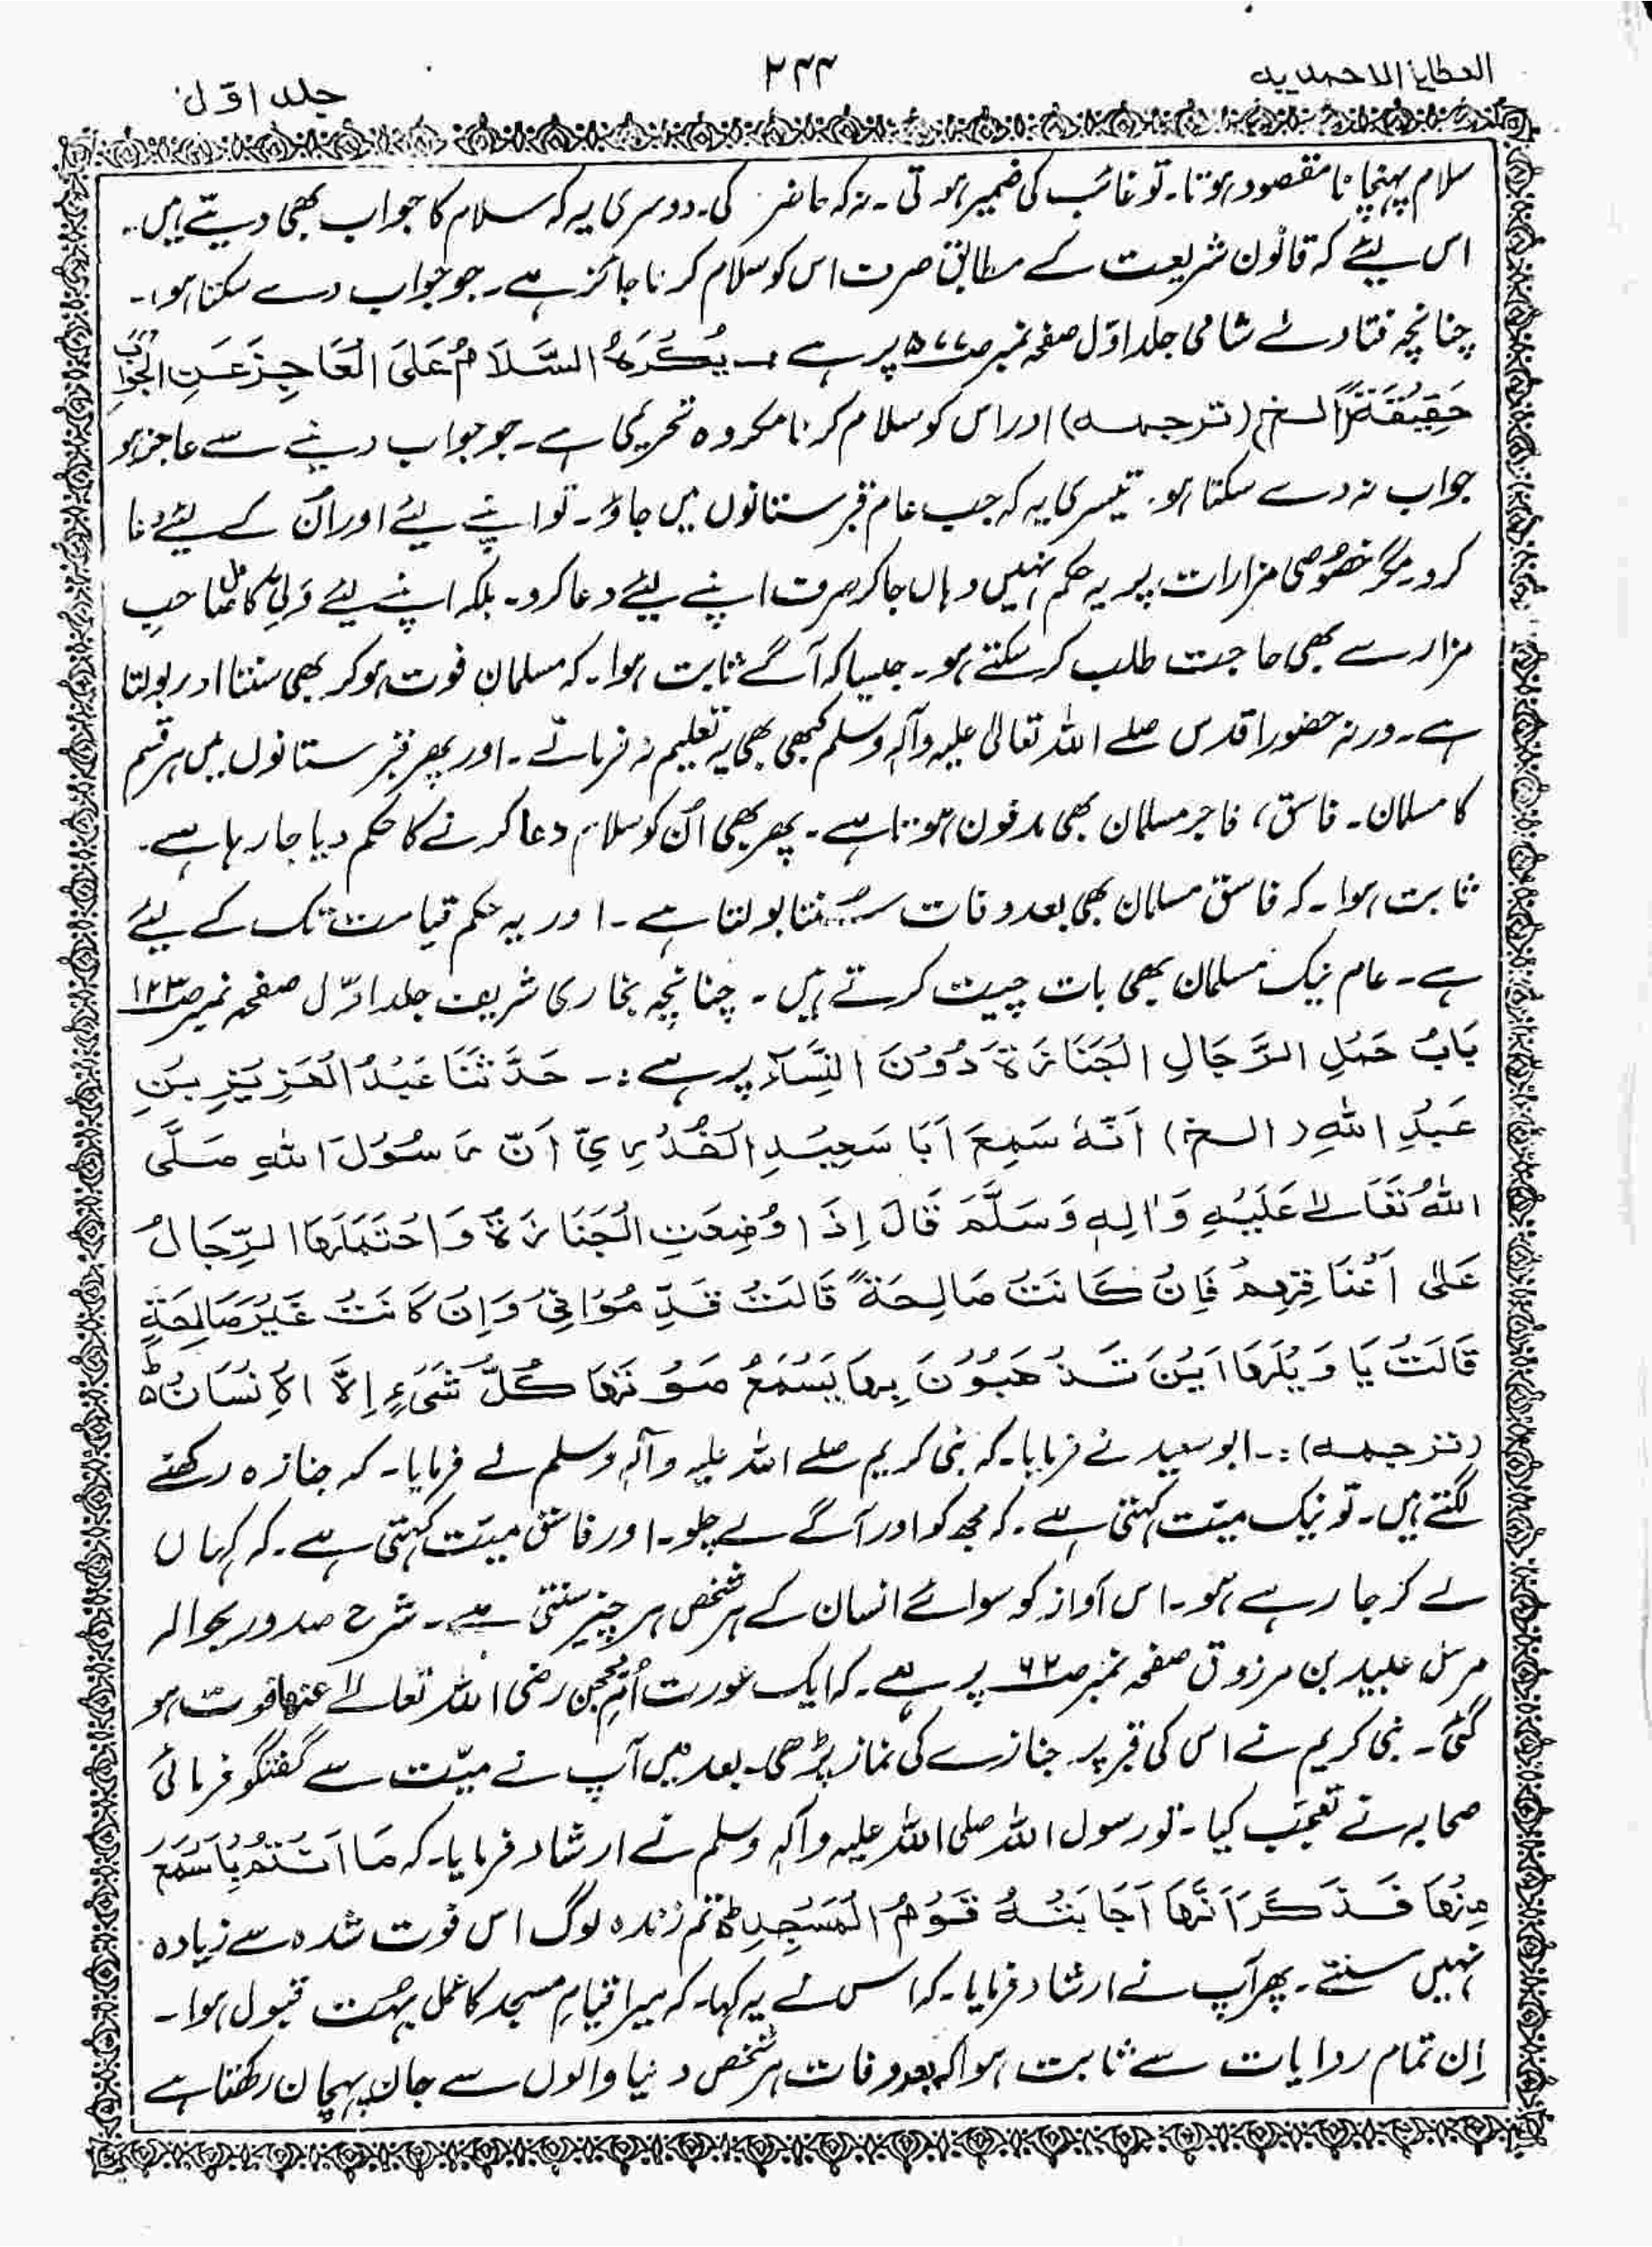 العطایا الاحمدیہ
۲۴۴
جلد اوّل
سلام پہنچانا مقصود ہوتا۔ تو غائب کی ضمیر ہوتی۔ نہ کہ حاضر کی۔ دوسری یہ کہ سلام کا جواب بھی دیتے ہیں۔
اس لیئے کہ قانون شریعت کے مطابق صرف اس کو سلام کرنا جائز ہے۔ جو جواب دے سکتا ہو۔
چنانچہ فتاوےٰ شامی جلد اوّل صفحہ نمبر ص۵۷۷ پر ہے :۔ یُکْرَہُ السَّلَامُ عَلَی الْعَاجِزِ عَنِ الْجَوَابِ
حَقِیْقَۃً الخ (ترجمہ) اور اس کو سلام کرنا مکروہ تحریمی ہے۔ جو جواب دینے سے عاجز ہو
جواب نہ دے سکتا ہو۔ تیسری یہ کہ جب عام قبرستانوں میں جاؤ۔ تو اپنے لیئے اور اُن کے لیئے دعا
کرو۔ مگر خصوصی مزارات پر یہ حکم نہیں وہاں جا کر صرف اپنے لیئے دعا کرو۔ بلکہ اپنے لیئے ولیِ کامل صاحبِ
مزار سے بھی حاجت طلب کر سکتے ہو۔ جیسا کہ آگے ثابت ہوا۔ کہ مسلمان فوت ہو کر بھی سنتا اور بولتا
ہے۔ ورنہ حضور اقدس صلے اللہ تعالیٰ علیہ وآلہٖ وسلم کبھی بھی یہ تعلیم نہ فرماتے۔ اور پھر قبرستانوں میں ہر قسم
کا مسلمان۔ فاسق، فاجر مسلمان بھی مدفون ہوتا ہے۔ پھر بھی اُن کو سلام دعا کرنے کا حکم دیا جا رہا ہے۔
ثابت ہوا۔ کہ فاسق مسلمان بھی بعد وفات سنتا بولتا ہے۔ اور یہ حکم قیامت تک کے لیئے
ہے۔ عام نیک مسلمان بھی بات چیت کرتے ہیں۔ چنانچہ بخاری شریف جلد اوّل صفحہ نمبر ص۱۲۳
بَابُ حَمْلِ الرَّجَالِ الْجَنَازَۃَ دُوْنَ النِّسَآءِ پر ہے :۔ حَدَّثَنَا عَبْدُ الْعَزِیْزِ بْنِ
عَبْدِ اللہِ (الخ) اَنَّہٗ سَمِعَ اَبَا سَعِیْدِ الْخُدْرِیِّ اَنَّ رَسُوْلَ اللہِ صَلَّی
اللہُ تَعَالٰے عَلَیْہِ وَاٰلِہٖ وَسَلَّمَ قَالَ اِذَا وُضِعَتِ الْجَنَازَۃُ وَاحْتَمَلَہَا الرِّجَالُ
عَلیٰ اَعْنَاقِہِمْ فَاِنْ کَانَتْ صَالِحَۃً قَالَتْ قَدِّمُوْانِیْ وَاِنْ کَانَتْ غَیْرَ صَالِحَۃٍ
قَالَتْ یَا وَیْلَہَا اَیْنَ تَذْھَبُوْنَ بِہَا یَسْمَعُ صَوْتَہَا کُلُّ شَیْءٍ اِلَّا الْاِنْسَانُ ط
(ترجمہ) :۔ ابو سعید نے فرمایا۔ کہ نبی کریم صلے اللہ علیہ وآلہٖ وسلم نے فرمایا۔ کہ جنازہ رکھنے
لگتے ہیں۔ تو نیک میّت کہتی ہے۔ کہ مجھ کو اور آگے لے چلو۔ اور فاسق میّت کہتی ہے۔ کہ کہاں
لے کر جا رہے ہو۔ اس آواز کو سوائے انسان کے ہر شخص ہر چیز سنتی ہے۔ شرح صدور بحوالہ
مرسل عبید بن مرزوق صفحہ نمبر ص۶۲ پر ہے۔ کہ ایک عورت اُمِّ محجن رضی اللہ تعالےٰ عنھا فوت ہو
گئی۔ نبی کریم نے اس کی قبر پر جنازے کی نماز پڑھی۔ بعد میں آپ نے میّت سے گفتگو فرمائی
صحابہ نے تعجّب کیا۔ تو رسول اللہ صلی اللہ علیہ وآلہٖ وسلم نے ارشاد فرمایا۔ کہ مَا اَنْتُمْ بِاَسْمَعَ
مِنْھَا فَذَکَرَ اَنَّھَا اَجَابَتْہُ قَوْمُ الْمَسْجِدِ ط تم زندہ لوگ اس فوت شدہ سے زیادہ
نہیں سنتے۔ پھر آپ نے ارشاد فرمایا۔ کہ اس نے یہ کہا۔ کہ میرا قیامِ مسجد کا عمل بہت قبول ہوا۔
اِن تمام روایات سے ثابت ہوا کہ بعد وفات ہر شخص دنیا والوں سے جان پہچان رکھتا ہے